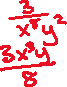 3
x⁸y²
3x⁹y
8